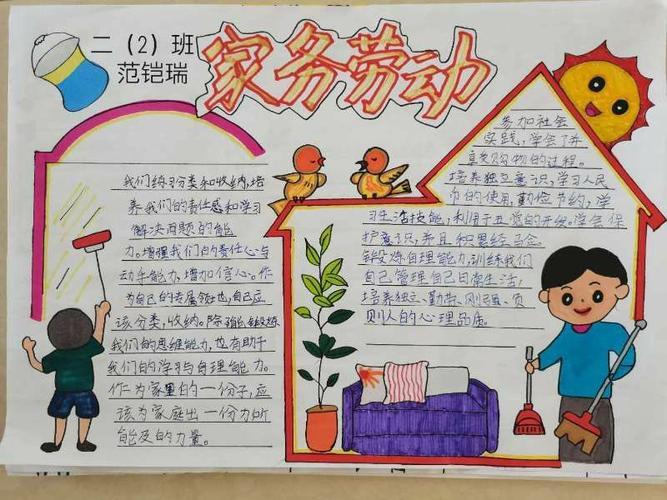 二（2）班
范铠瑞
家务劳动
我们练习分类和收纳,培
养我们的责任感和学习
解决问题的能
力。增强我们的责任心与
动手能力,增加信心。作
为自己的专属领地,自己应
该分类,收纳。除了能锻炼
我们的思维能力,也有助于
我们的学习与自理能力。
作为家里的一份子,应
该为家庭出一份力所
能及的力量。
参加社会
实践,学会了并
真实购物的过程。
培养独立意识,学习人民
币的使用,勤俭节约,学
习生活技能,利用于五觉的开发。学会保
护意识,并且积累经验
锻炼自理能力,训练我们
自己管理自己日常生活,
培养独立、勤劳、刚强、负
则人的心理品质。